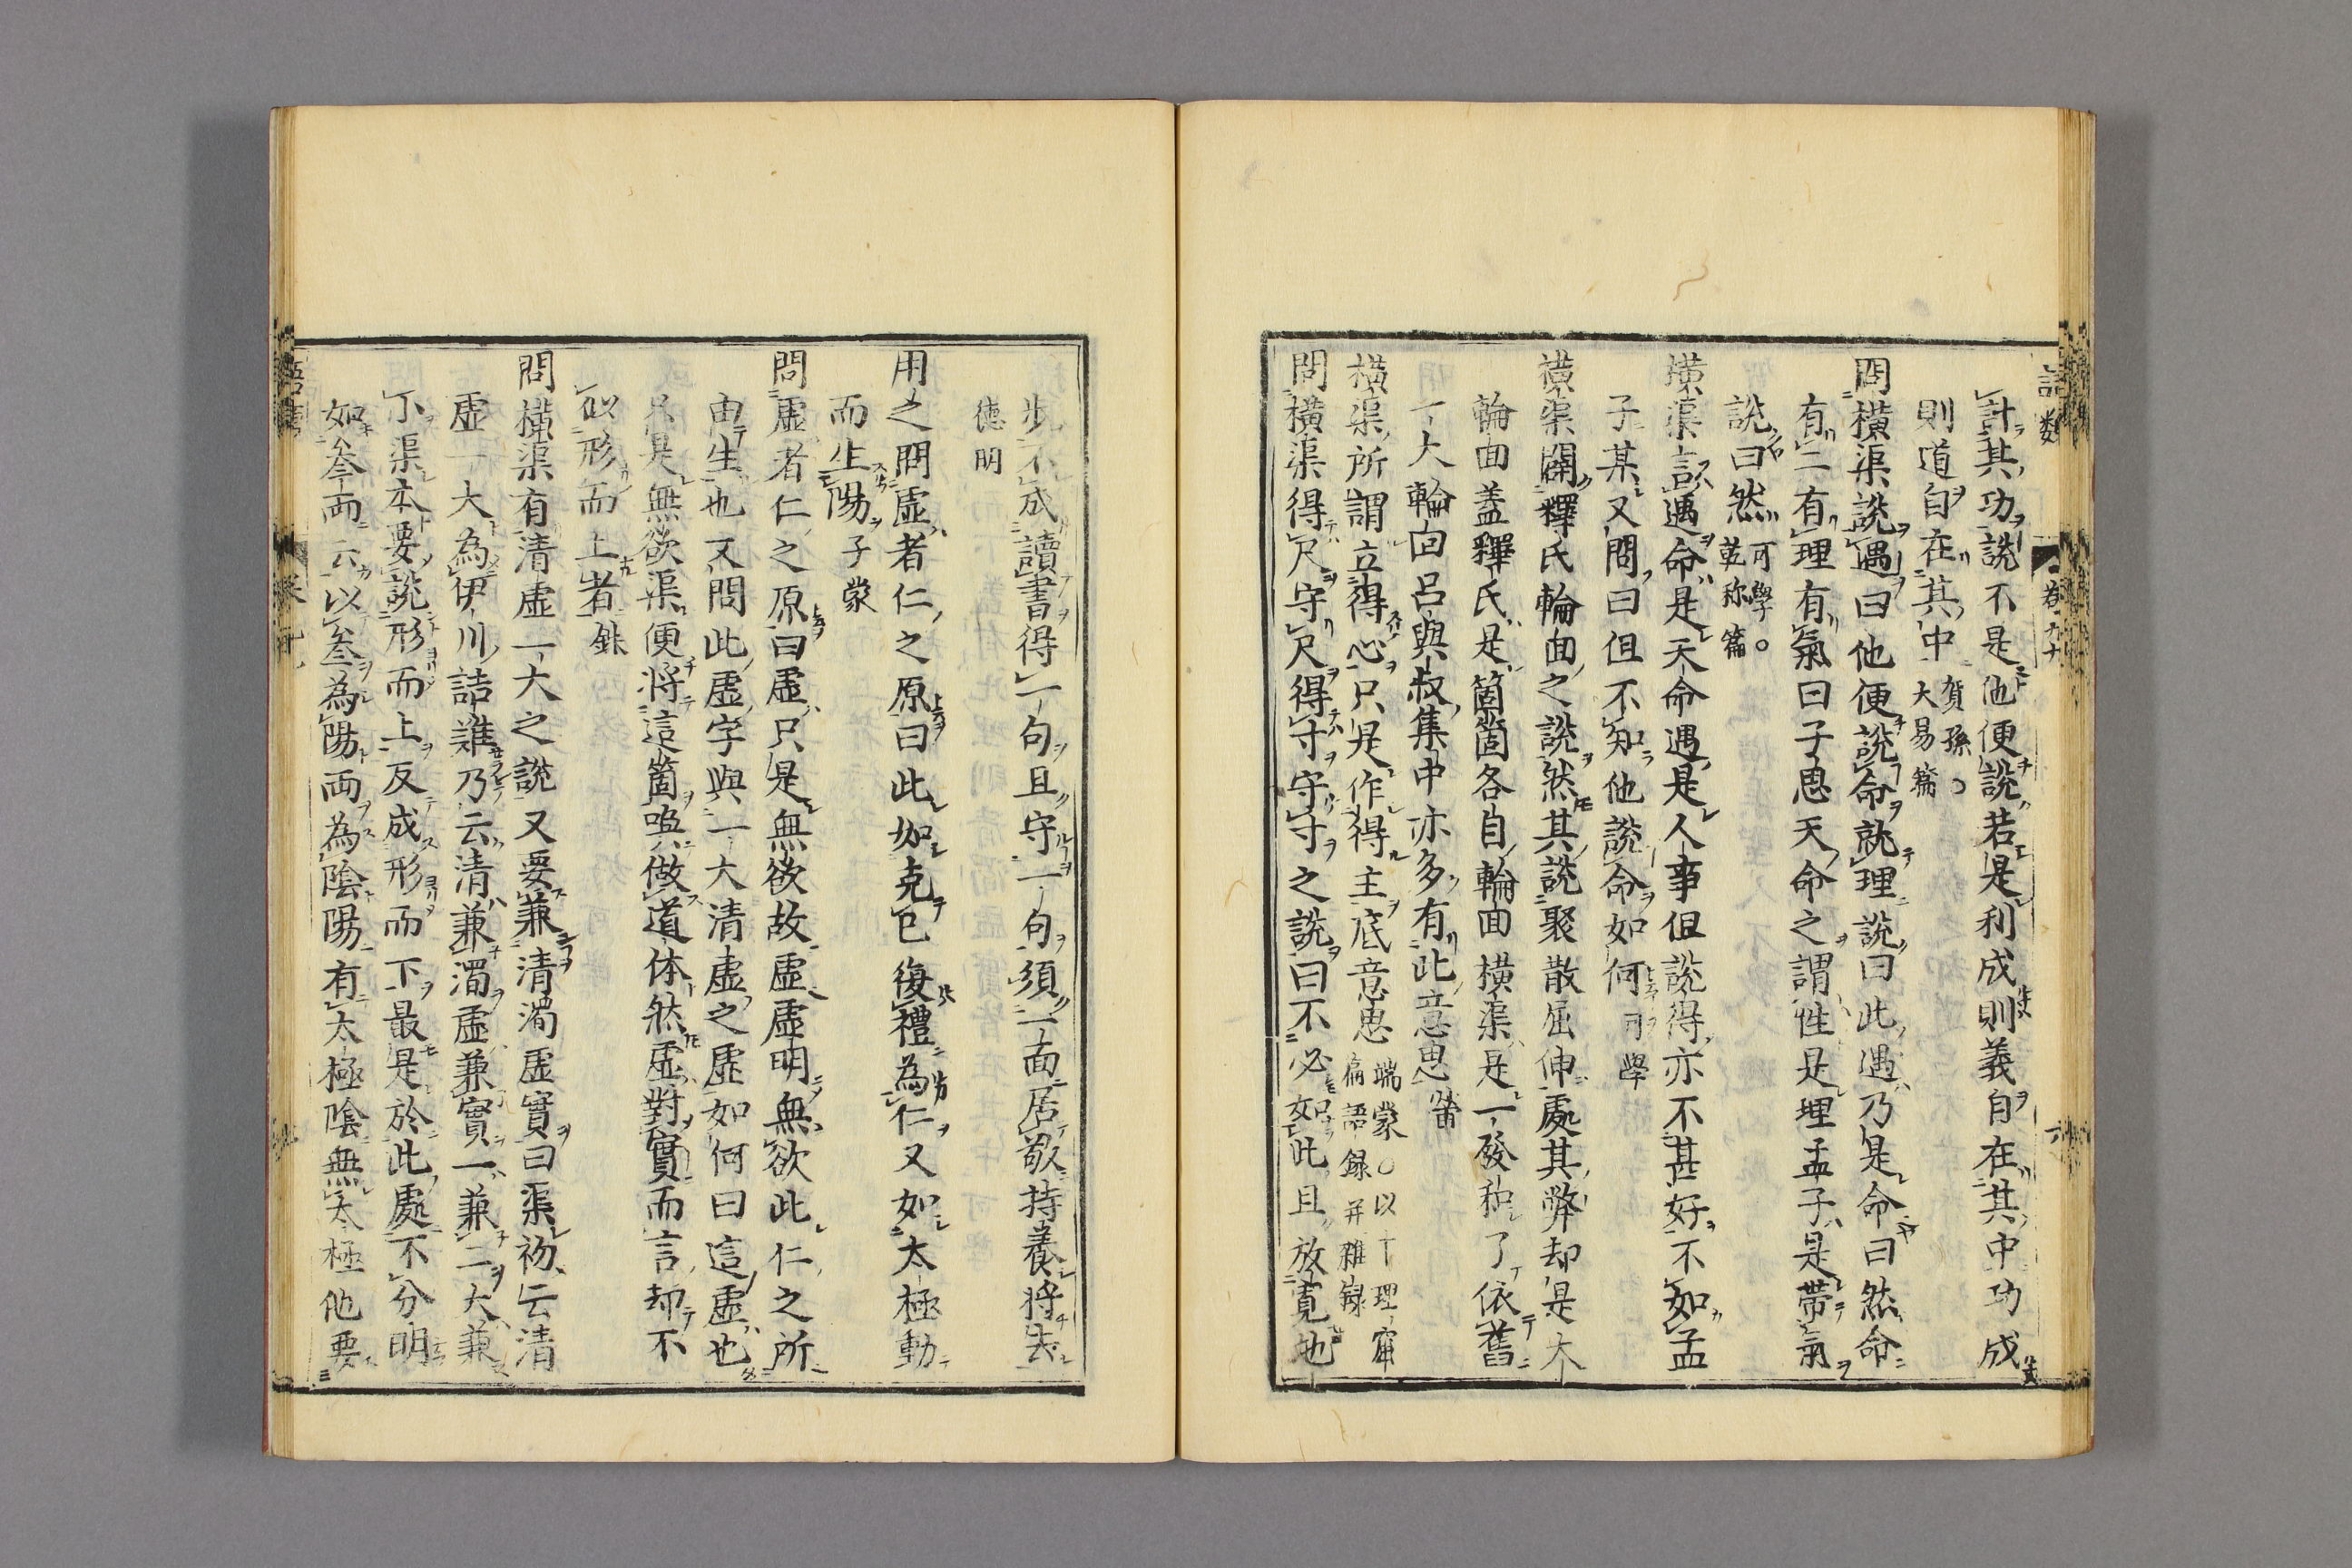 計其功說不是他便說若是利成則義自在其中功成
則道自在其中 賀孫○
大易篇
問橫渠說遇曰他便說命就理說曰此遇乃是命曰然命
有二有理有氣曰子思天命之謂性是理孟子是帶氣
說曰然 可學○
乾称篇
橫渠言遇命是天命遇是人事但說得亦不甚好不如孟
子某又問曰但不知他說命如何 可學
橫渠闢釋氏輪回之說然其說聚散屈伸處其弊却是大
輪回蓋釋氏是箇箇各自輪回橫渠是一發和了依舊
一大輪回呂與叔集中亦多有此意思 㽦
橫渠所謂立得心只是作得主底意思 端蒙○以下理窟
語録并雜録
問橫渠得尺守尺得寸守寸之說曰不必如此且放寬也
步不成讀書得一句且守一句須一面居敬持養將去
德明
用之問虛者仁之原曰此如克己復禮為仁又如太極動
而生陽 子蒙
問虛者仁之原曰虛只是無欲故虛虛明無欲此仁之所
由生也又問此虛字與一大清虛之虛如何曰這虛也
只是無欲渠便將這箇喚做道体然虛對實而言却不
似形而上者 銖
問橫渠有清虛一大之說又要兼清濁虛實曰渠初云清
虛一大為伊川詰難乃云清兼濁虛兼實一兼二大兼
小渠本要說形而上反成形而下最是於此處不分明
如叅兩云以叅為陽兩為陰陽有太極陰無太極他要